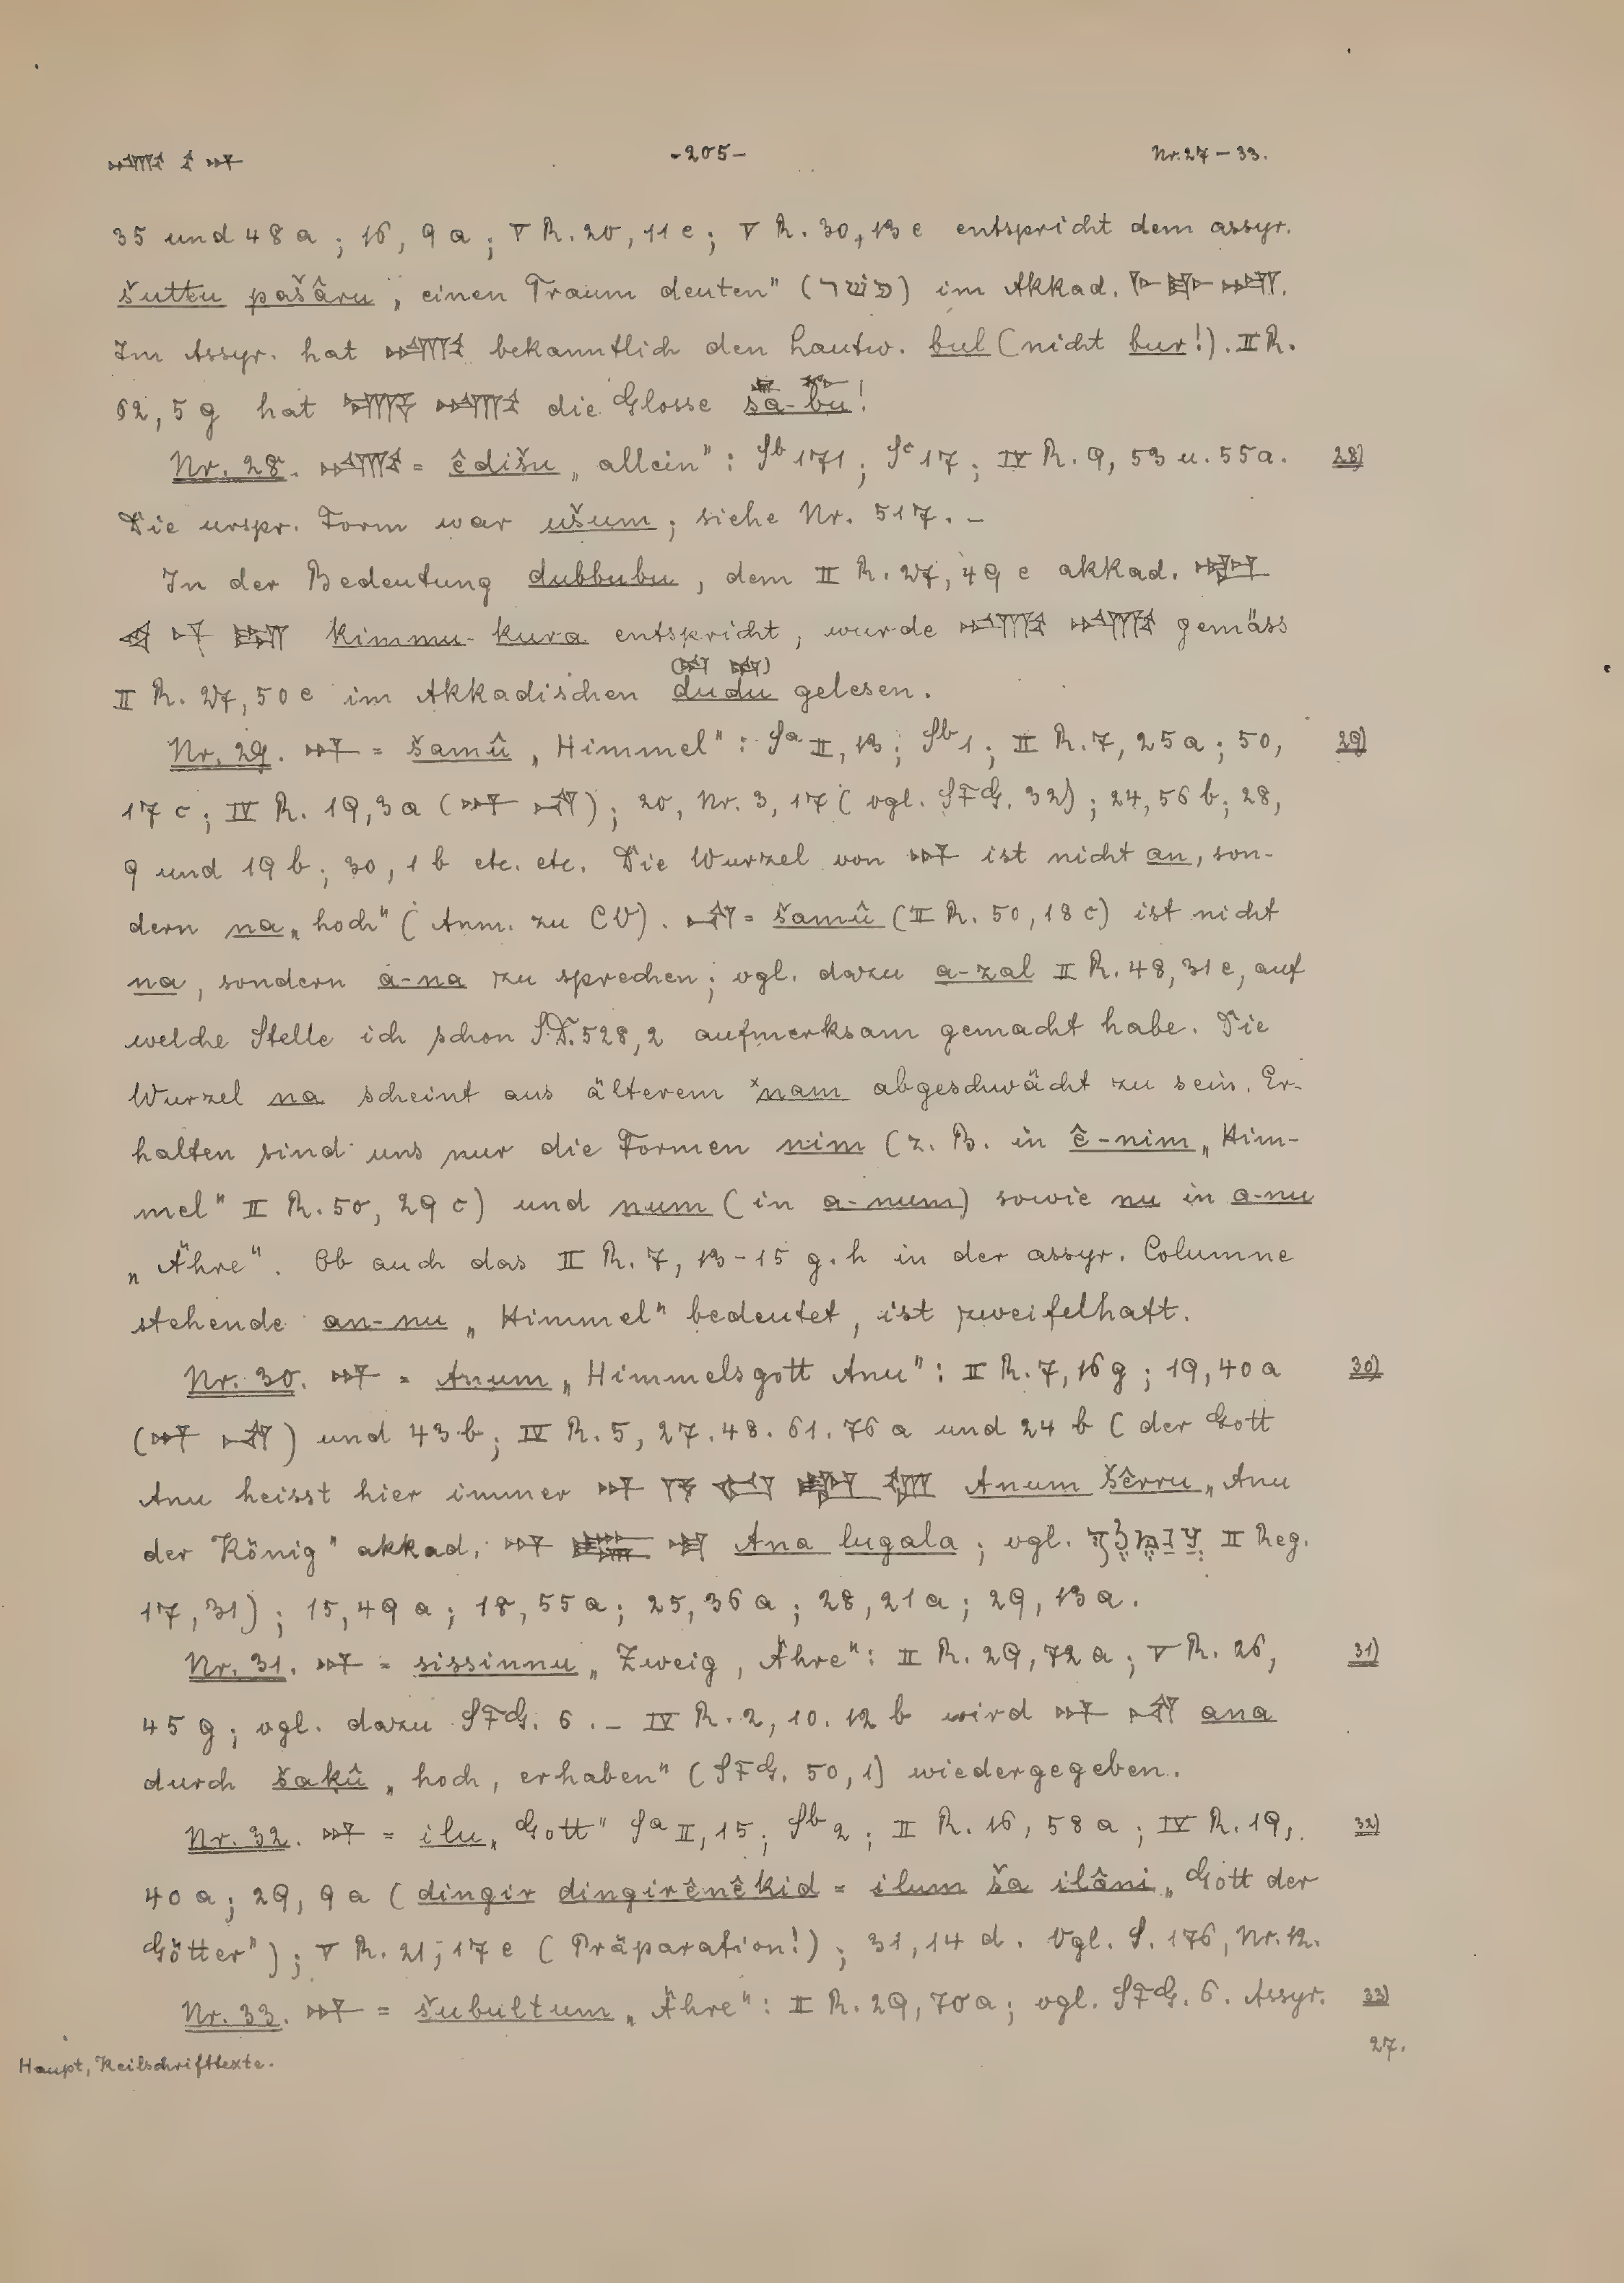 𒁔 𒀭 -205- Nr. 27-33.
35 und 48 a; 16, 9 a; V R. 20, 11 e; V R. 30, 13 e entspricht dem assyr.
šuttu pašâru „einen Traum deuten" (פשר) im Akkad.
Im Assyr. hat 𒁔 bekanntlich den Lautw. bul (nicht bur!). II R.
62, 5 g hat die Glosse sa-bu!
Nr. 28. 𒁔 = êdišu „allein": Sb 171; Sc 17; IV R. 9, 53 u. 55a. 28)
Die urspr. Form war ušum; siehe Nr. 517. –
In der Bedeutung dubbubu, dem II R. 27, 49 e akkad.
kimmu-kura entspricht, wurde 𒁔 𒁔 gemäss
II R. 27, 50 e im Akkadischen dudu gelesen.
Nr. 29. 𒀭 = šamû „Himmel": Sa II, 13; Sb 1; II R. 7, 25 a; 50, 29)
17 c; IV R. 19, 3 a (𒀭 𒈾); 20, Nr. 3, 17 (vgl. SFG. 32); 24, 56 b; 28,
9 und 19 b; 30, 1 b etc. etc. Die Wurzel von 𒀭 ist nicht an, son-
dern na „hoch" (Anm. zu CV). 𒈾 = šamû (II R. 50, 18 c) ist nicht
na, sondern a-na zu sprechen; vgl. dazu a-zal II R. 48, 31 e, auf
welche Stelle ich schon S.D. 528, 2 aufmerksam gemacht habe. Die
Wurzel na scheint aus älterem *nam abgeschwächt zu sein. Er-
halten sind uns nur die Formen nim (z. B. in ê-nim „Him-
mel" II R. 50, 29 c) und num (in a-num) sowie nu in a-nu
„Ähre". Ob auch das II R. 7, 13-15 g. h in der assyr. Columne
stehende an-nu „Himmel" bedeutet, ist zweifelhaft.
Nr. 30. 𒀭 = Anum „Himmelsgott Anu": II R. 7, 16 g; 19, 40 a 30)
(𒀭 𒈾) und 43 b; IV R. 5, 27. 48. 61. 76 a und 24 b (der Gott
Anu heisst hier immer 𒀭 Anum šêrru „Anu
der König" akkad. 𒀭 𒈗 𒆷 Ana lugala; vgl. II Reg.
17, 31); 15, 49 a; 18, 55 a; 25, 36 a; 28, 21 a; 29, 13 a.
Nr. 31. 𒀭 = sissinnu „Zweig, Ähre": II R. 29, 72 a; V R. 26, 31)
45 g; vgl. dazu SFG. 6. – IV R. 2, 10. 12 b wird 𒀭 𒈾 ana
durch šakû „hoch, erhaben" (SFG. 50, 1) wiedergegeben.
Nr. 32. 𒀭 = ilu „Gott" Sa II, 15; Sb 2; II R. 16, 58 a; IV R. 19, 32)
40 a; 29, 9 a (dingir dingirênêkid = ilum ša ilâni „Gott der
Götter"); V R. 21, 17 e (Präparation!); 31, 14 d. Vgl. S. 176, Nr. 12.
Nr. 33. 𒀭 = šubultum „Ähre": II R. 29, 70 a; vgl. SFG. 6. Assyr. 33)
27.
Haupt, Keilschrifttexte.